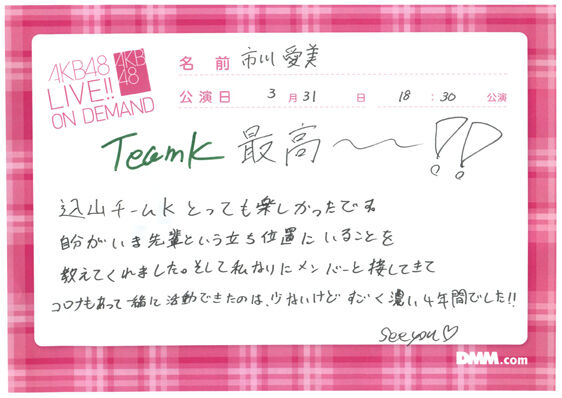 AKB48
LIVE!!
ON DEMAND
AKB
48
名前 市川愛美
公演日 3月31日 18:30公演
TeamK 最高〜〜!!
込山チームKとっても楽しかったです。
自分がいま先輩という立ち位置にいることを
教えてくれました。そして私なりにメンバーと接してきて
コロナもあって一緒に活動できたのは、少ないけどすごく濃い4年間でした!!
see you♡
DMM.com